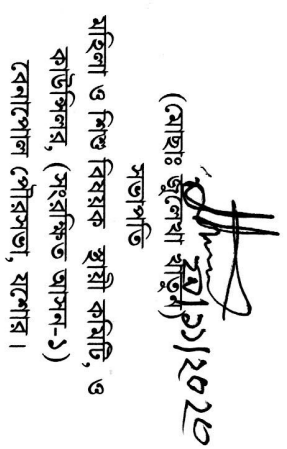 ২৫/১১/২০২০
(মোছাঃ জুলেখা খাতুন)
সভাপতি
মহিলা ও শিশু বিষয়ক স্থায়ী কমিটি, ও
কাউন্সিলর, (সংরক্ষিত আসন-১)
বেনাপোল পৌরসভা, যশোর।